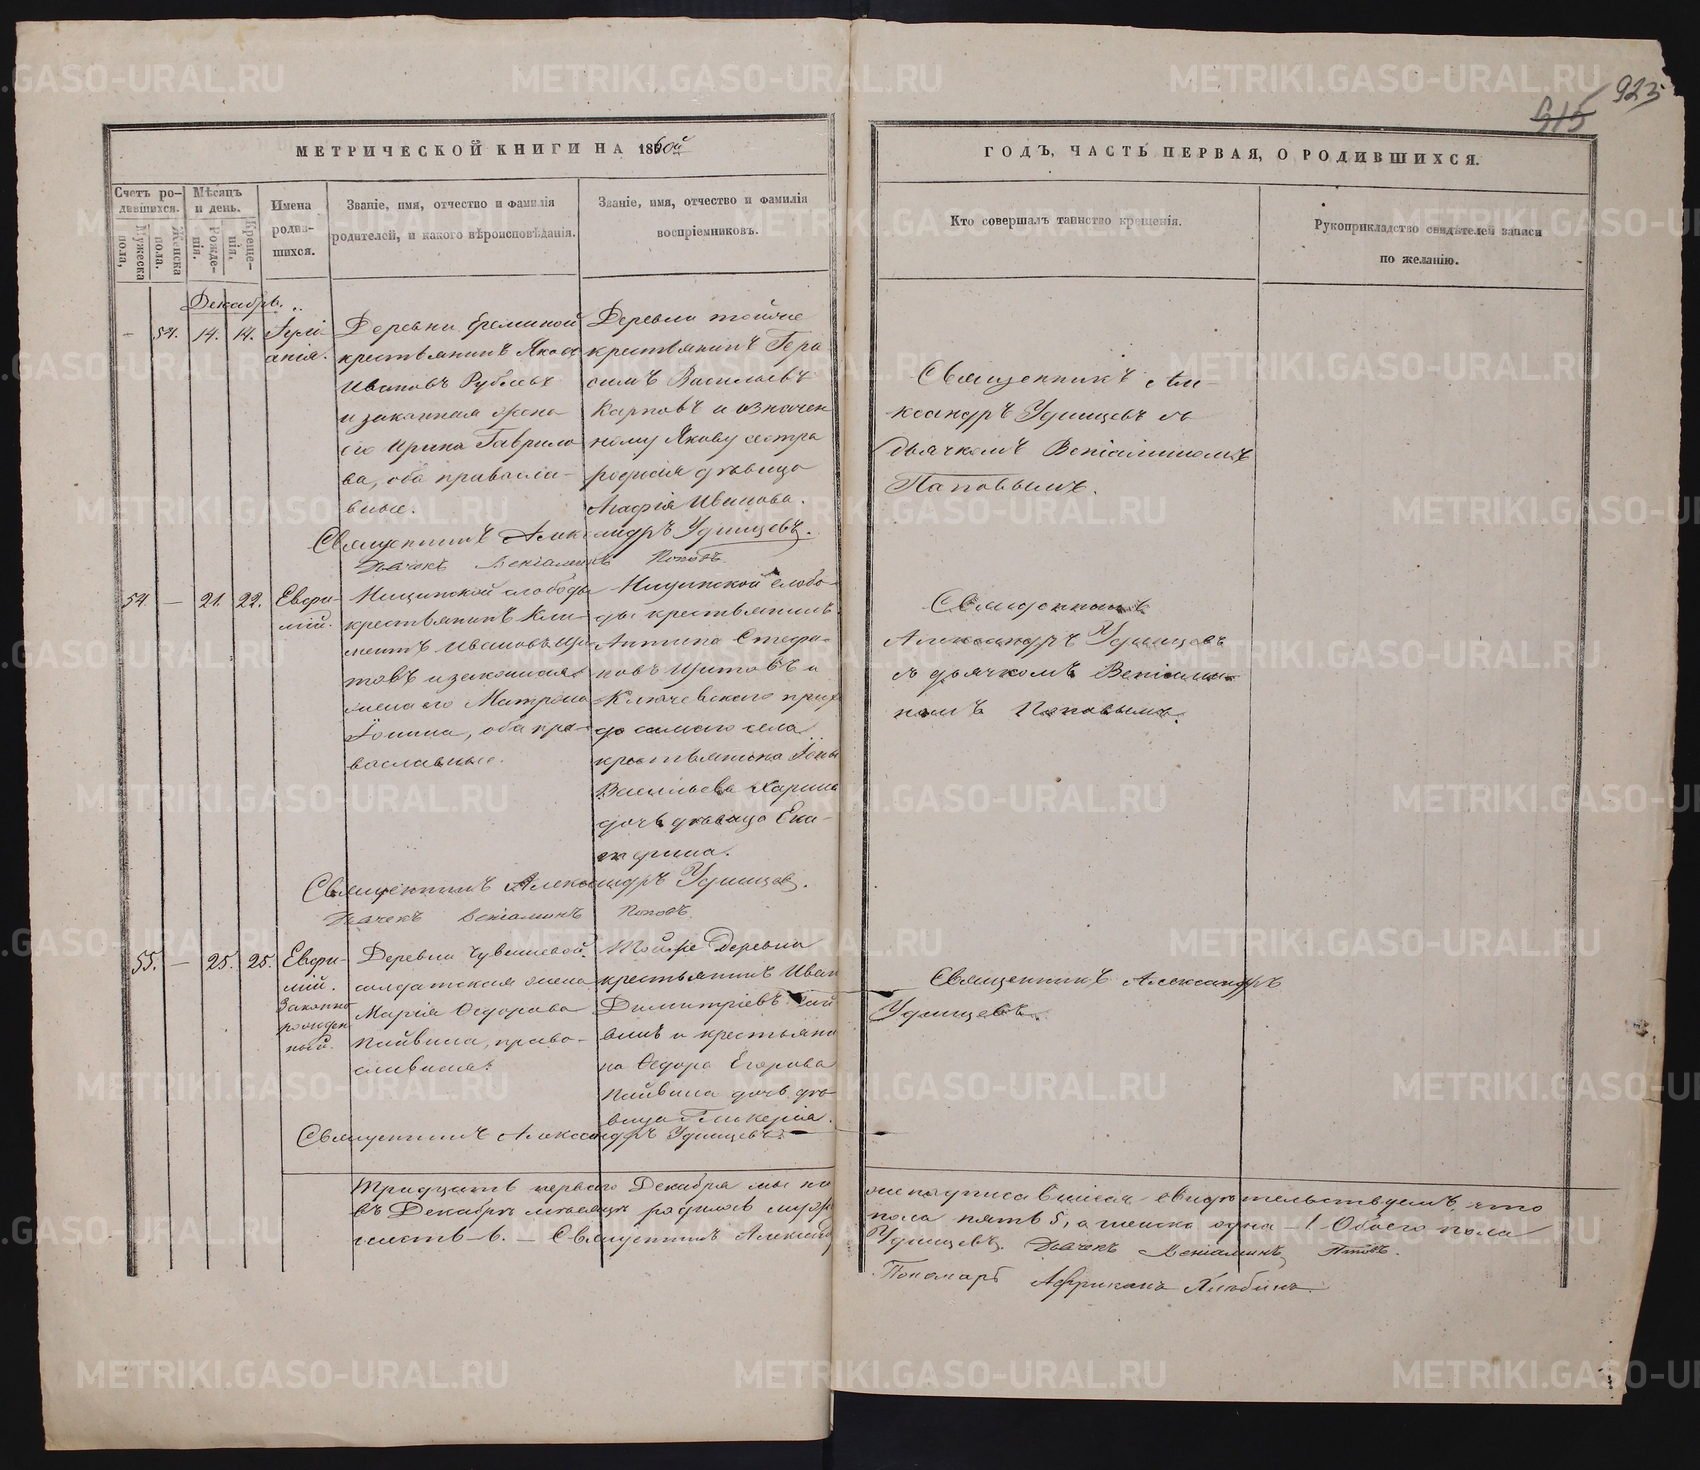 923
915
МЕТРИЧЕСКОЙ КНИГИ НА 1860й
ГОДЪ, ЧАСТЬ ПЕРВАЯ, О РОДИВШИХСЯ.
Счетъ ро-
дившихся.
Мужеска
пола,
Женска
пола.
Мѣсяцъ
и день.
Рожде-
нія.
Креще-
нія.
Имена
родив-
шихся.
Званіе, имя, отчество и фамилія
родителей, и какого вѣроисповѣданія.
Званіе, имя, отчество и фамилія
воспріемниковъ.
Кто совершалъ таинство крещенія.
Рукоприкладство свидѣтелей записи
по желанію.
Декабрь.
— 54. 14. 14.
Іулі-
анія.
Деревни Ереминой
крестьянинъ Яковъ
Ивановъ Рублевъ
и законная жена
его Ирина Гаврило
ва, оба правосла-
вные.
Деревни тойже
крестьянинъ Гера
симъ Васильевъ
Карповъ и означен
ному Якову сестра
родная дѣвица
Агафія Иванова.
Священникъ Але-
ксандръ Удинцевъ съ
дьячкомъ Веніаминомъ
Поповымъ.
Священникъ Александръ Удинцевъ.
Дьячекъ Веніаминъ Поповъ.
54 — 21. 22.
Евфи-
мій.
Ницинской слободы
крестьянинъ Кли-
ментъ Ивановъ Щи
товъ и законная
жена его Матрона
Іонина, оба пра-
вославные.
Ницинской слобо-
ды крестьянинъ
Антипа Стефа-
новъ Щитовъ и
Ключевскаго прихо
да самаго села
крестьянина Іоны
Васильева Харина
дочь дѣвица Ека-
терина.
Священникъ
Александръ Удинцевъ
съ дьячкомъ Веніами-
номъ Поповымъ.
Священникъ Александръ Удинцевъ.
Дьячекъ Веніаминъ Поповъ.
55. — 25. 25.
Евфи-
мій.
Законно
рожден
ный.
Деревни Чувашевой.
солдатская жена
Марія Ѳедорова
Пайвина, право-
славная.
Тойже Деревни
крестьянинъ Иванъ
Димитріевъ Пай
винъ и крестьяни
на Ѳедора Егорова
Пайвина дочь дѣ-
вица Гликерія.
Священникъ Александръ
Удинцевъ.
Священникъ Александръ Удинцевъ.
Тридцать перваго Декабря мы ни
же подписавшіеся свидѣтельствуемъ, что
въ Декабрѣ мѣсяцѣ родилось мужс
пола пять 5, а женска одна — 1. Обоего пола
шесть — 6. — Священникъ Александръ
Удинцевъ. Дьячекъ Веніаминъ Поповъ.
Пономарь Африканъ Хлюбинъ.